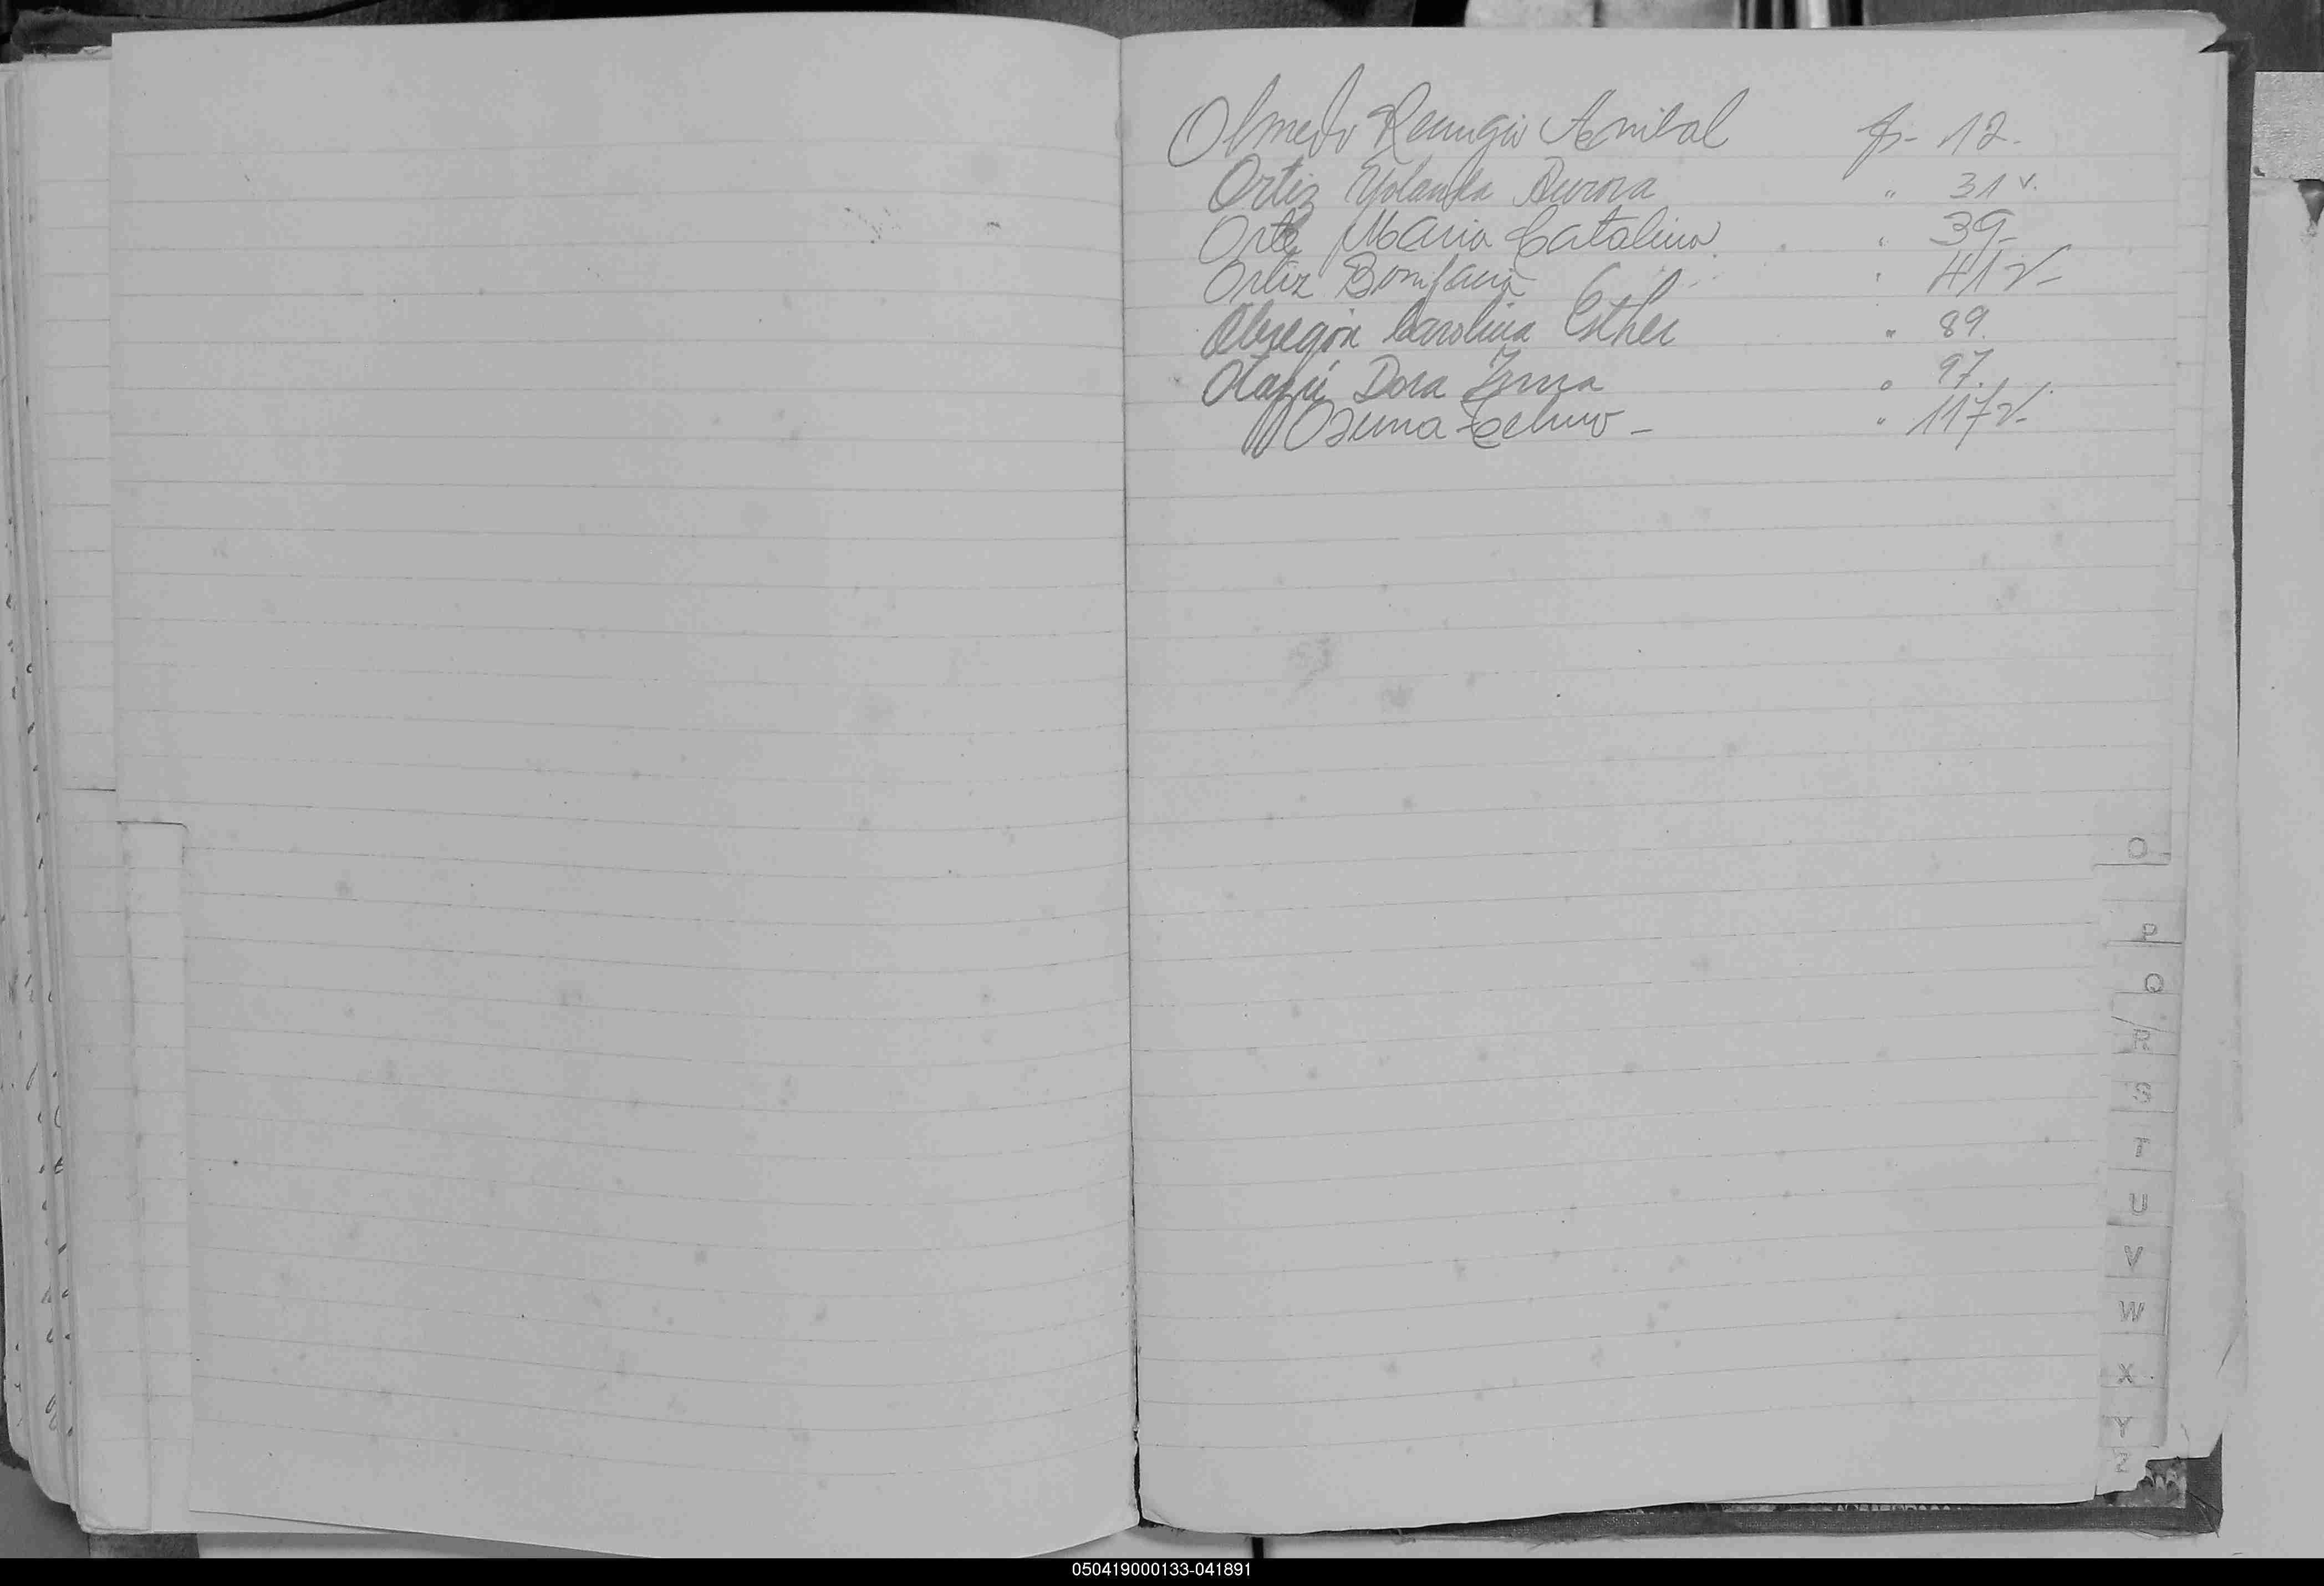 Olmedo Remigio Anibal fs- 12.
Ortiz Yolanda Aurora " 31 v.
Orte Maria Catalina " 39-
Ortiz Bonifacia " 41 v-
Obregón Carolina Esther " 89.
Otazú Dora Irma " 97.
Osuna Telmo - " 117 v-
O
P
Q
R
S
T
U
V
W
X
Y
Z
050419000133-041891